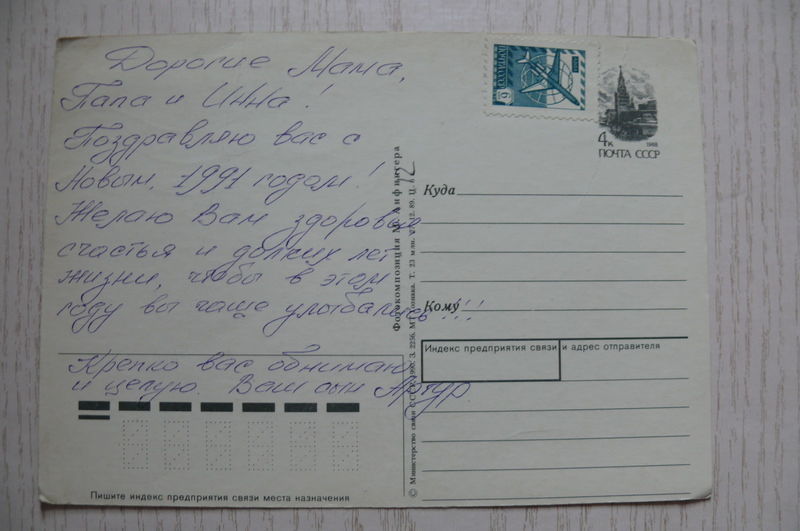 Дорогие Мама,
Папа и Инна!
Поздравляю вас с
Новым, 1991 годом!
Желаю Вам здоровья
счастья и долгих лет
жизни, чтобы в этом
году вы чаще улыбались!!!
Крепко вас обнимаю
и целую. Ваш сын Артур
Пишите индекс предприятия связи места назначения
Фотокомпозиция М. Анфингера
© Министерство связи СССР. 1990. З. 2256. Т. 23 млн. 12.89. Ц.
4к
1988
ПОЧТА СССР
Куда
Кому
Индекс предприятия связи и адрес отправителя